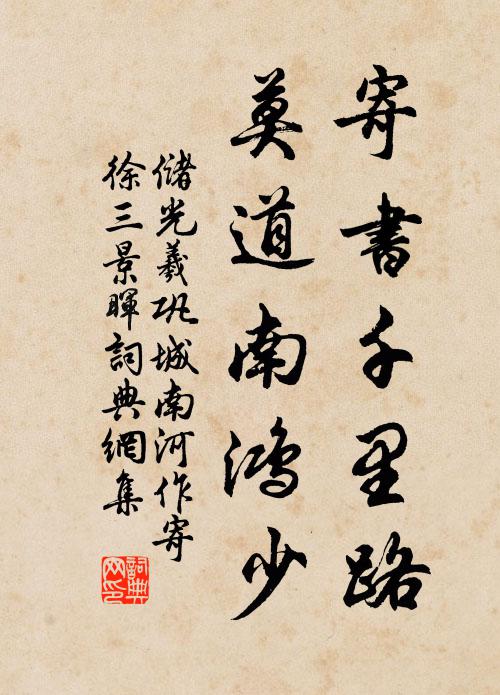 寄書千里路
莫道南鴻少
儲光羲巩城南河作寄
徐三景暉詞典網集
詞典网印